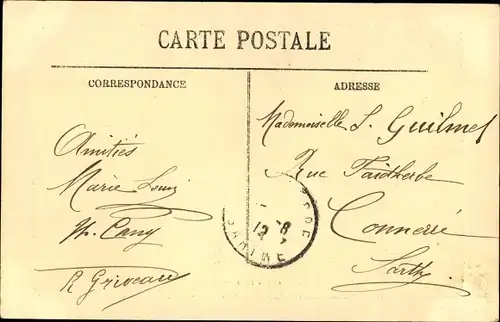 CARTE POSTALE
CORRESPONDANCE
ADRESSE
Amitiés
Marie Louise
M. Cany
R Griveau
Mademoiselle S. Guilmet
Rue Faidherbe
Connerré
Sarthe
SARTHE